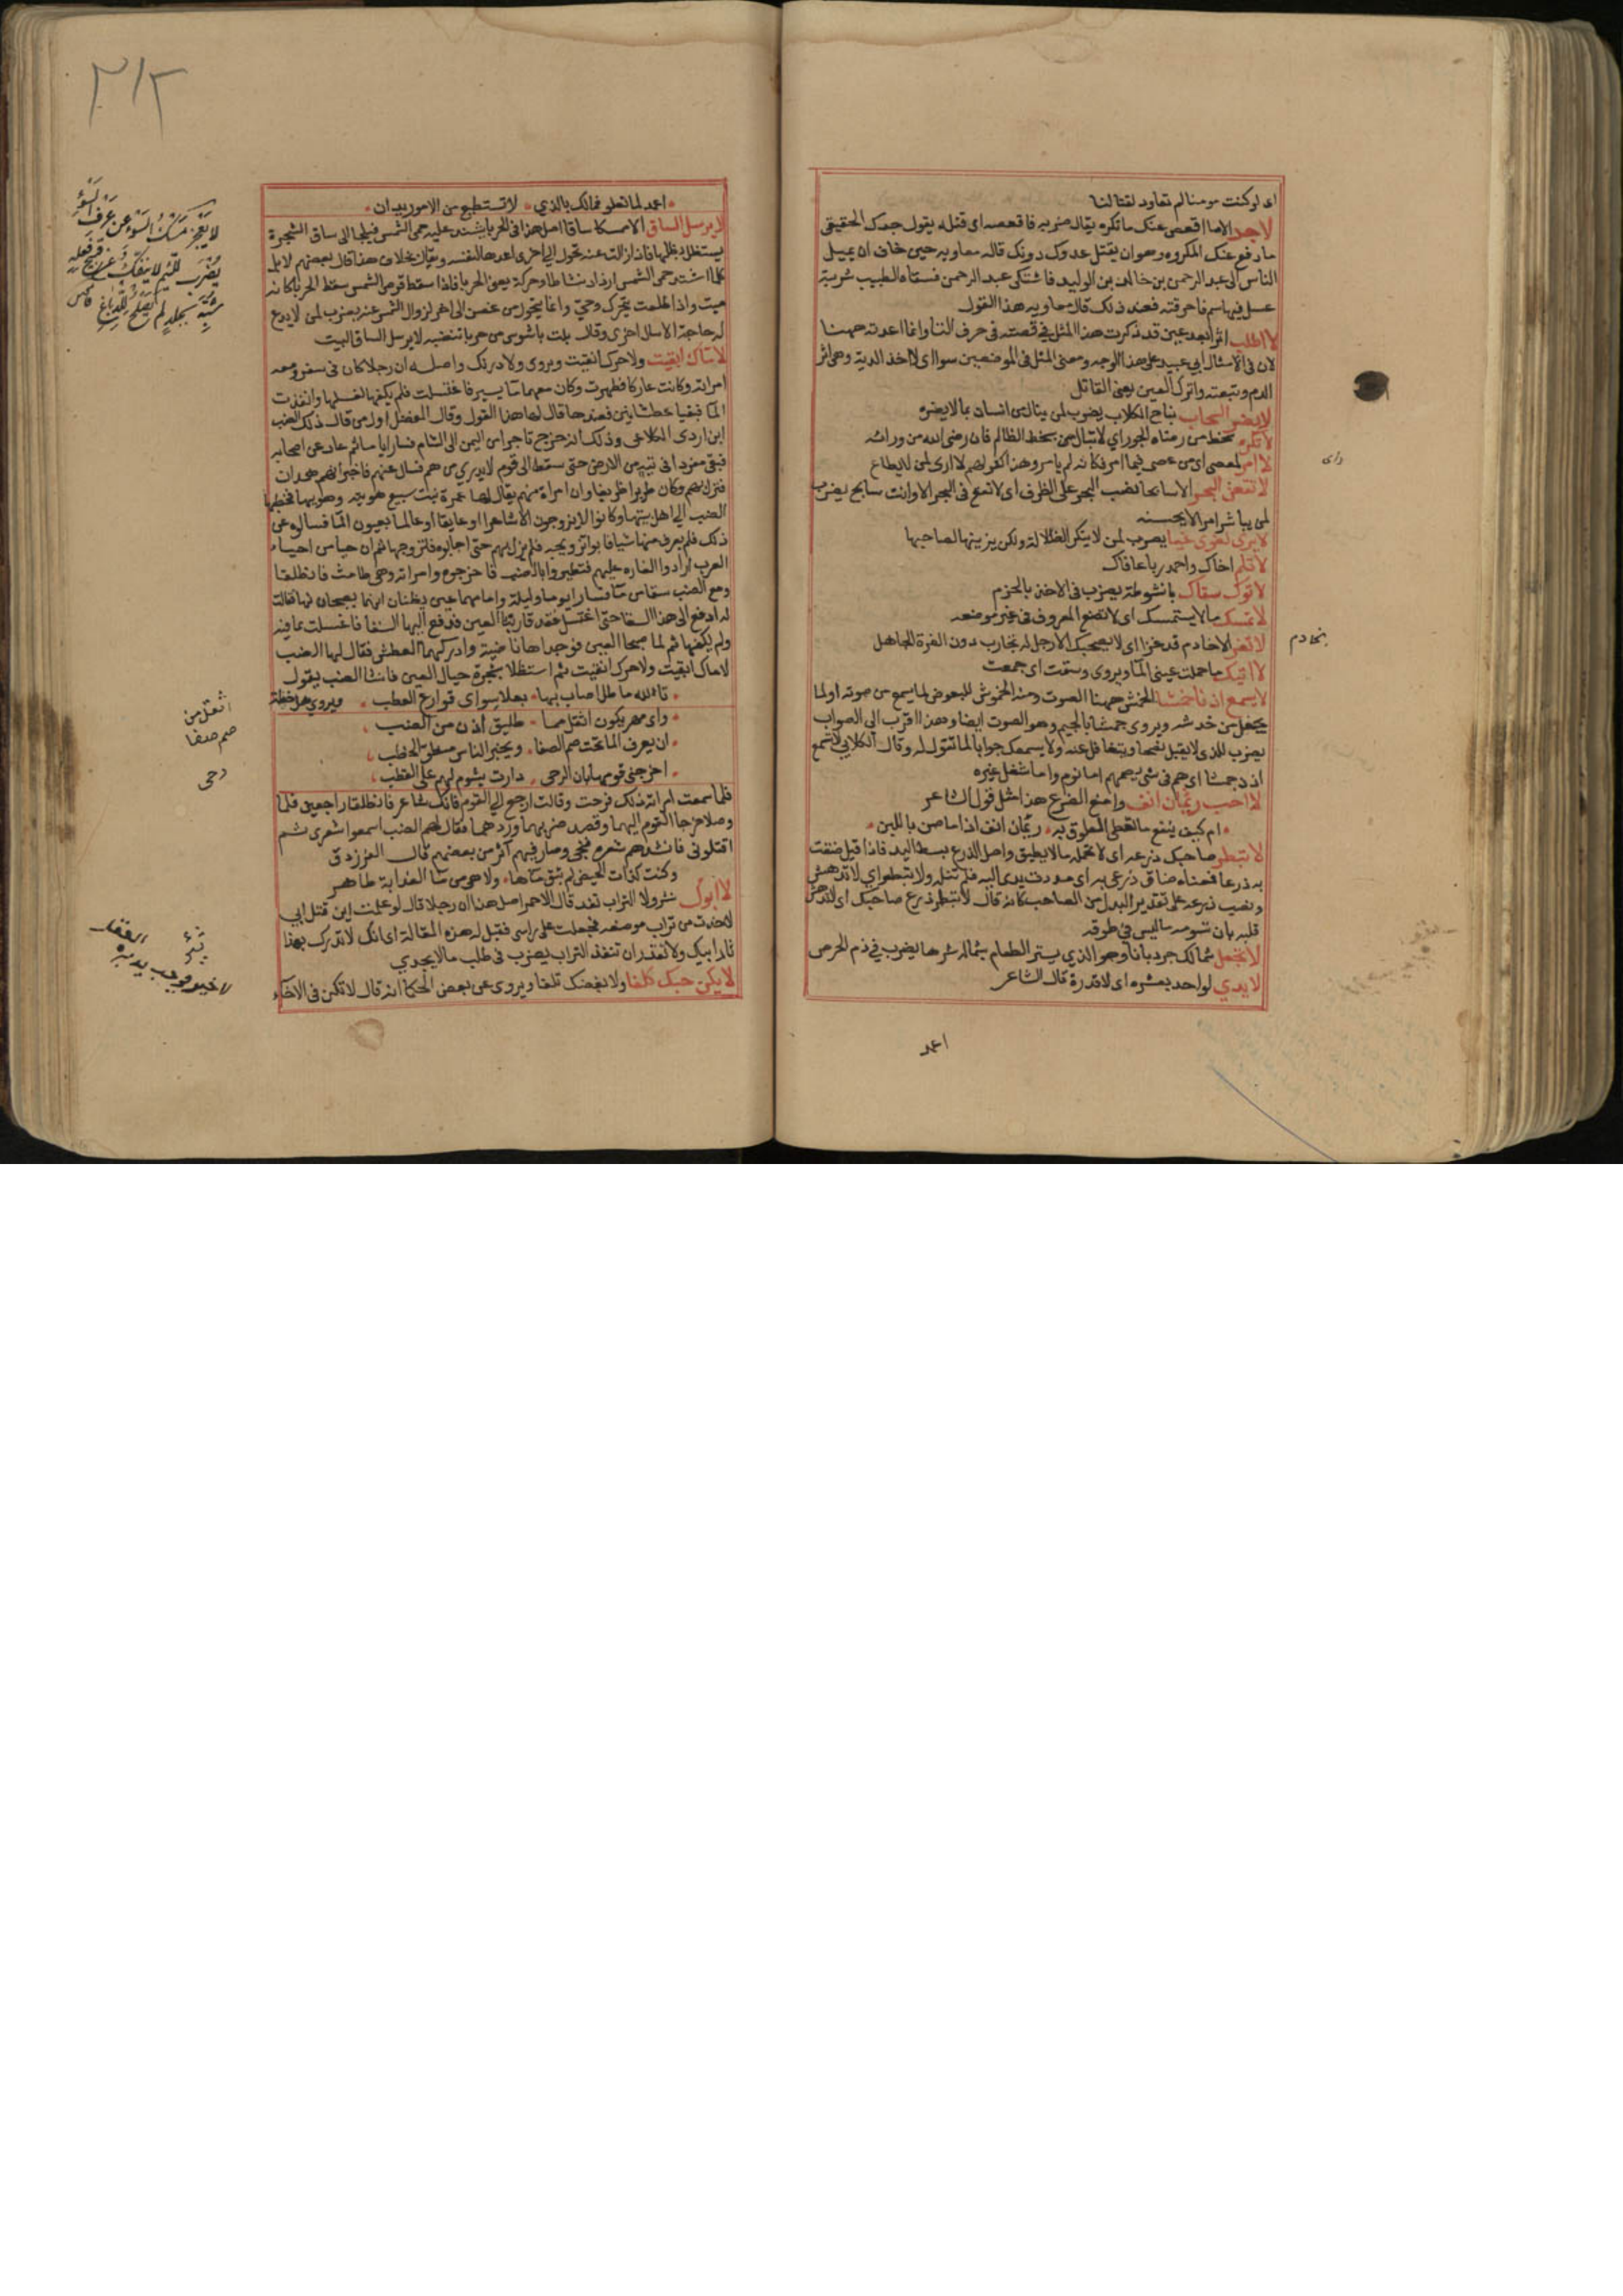 اى لو كنت مومنا لم تعاود لقتالنا
لا جد الا ما اقعص عنك ما تكره يقال ضربه فاقعصه اى قتله يقول جدك الحقيقى
ما دفع عنك المكروه وهو ان يقتل عدوك دونك قاله معاويه حين خاف ان يميل
الناس الى عبد الرحمن بن خالد بن الوليد فاشتكى عبد الرحمن فسقاه الطبيب شربة
عسل فيها سم فاحرقته فعند ذلك قال معاويه هذا القول
لا اطلب اثرا بعد عين قد ذكرت هذا المثل فى قصته فى حرف التا وانما اعدته ههنا
لان فى الامثال ابى عبيد على هذا الوجه ومعنى المثل فى الموضعين سوا اى لا اخذ الدية وهى اثر
الدم وتبعته واترك العين يعنى القاتل
لا يضر السحاب نباح الكلاب يضرب لمن ينال من انسان بما لا يضره
لا تكره سخط من رضاه الجور اى لا تبال من سخط الظالم فان رضى الله من ورائه
لا امر لمعصى اى من عصى فيما امر فكانه لم يامر وهذا كقولهم لا اراى لمن لا يطاع
لا تقعن البحر الا سابحا نصب البحر على الظرف اى لا تقع فى البحر الا وانت سابح يضرب
لمن يباشر امرا لا يحسنه
لا يرى لغوى غيا يضرب لمن لا ينكر الضلالة ولكن يزينها لصاحبها
لا تلم اخاك واحمد ربا عافاك
لا توك سقاك بانشوطة يضرب فى الاخذ بالحزم
لا تمسك ما لا يستمسك اى لا تضع المعروف فى غير موضعه
لا تغز الا بخادم قد غزا اى لا يصحبك الا رجل له تجارب دون الغرة الجاهل
لا اتيك ما حملت عينى الما ويروى وسقت اى جمعت
لا يسمع اذ ناخمشا الخمش ههنا الصوت ومنه الخموش للبعوض لما يسمع من صوته او لما
يحصل من خدشه ويروى جمشا بالجيم وهو الصوت ايضا وهذا اقرب الى الصواب
يضرب للذى لا يقبل نصحا ويتغافل عنه ولا يسمعك جوابا لما تقول له وقال الكلابى لا تسمع
اذ ذ جمشا اى هم فى شى يصمهم اما نوم واما شغل غيره
لا احب رئمان انف وامنع الضرع هذا مثل قول الشاعر
ام كيف ينفع ما تعطى العلوق به رئمان انف اذا ما ضن باللبن
لا تبطر صاحبك ذرعه اى لا تحمله ما لا يطيق واصل الذرع بسط اليد فاذا قيل ضقت
به ذرعا فمعناه ضاق ذرعى به اى مددت يدى اليه فلم تنله ولا تبطر اى لا تدهش
ونصب ذرعه على تقدير البدل من الصاحب كانه قال لا تبطر ذرع صاحبك اى لا تدهش
قلبه بان تسومه ما ليس فى طوقه
لا تجعل شمالك جردبانا وهو الذى يستر الطعام بشماله شرها يضرب فى ذم الحرص
لا يدى لواحد بعشره اى لا قدرة قال الشاعر
راى
بخادم
اعمد
٣١٢
اعمد لما تعلو فمالك بالذى لا تستطيع من الامور يدان
لا يرسل الساق الا ممسكا ساقا اصل هذا فى الحربا يشتد عليه حمى الشمس فيلجا الى ساق الشجرة
يستظل بظلها فاذا زالت عنه تحول الى اخرى اعدها لنفسه ويقال بخلاف هذا قال بعضهم لا بل
كلما اشتد حمى الشمس ازداد نشاطا وحركة يعنى الحربا فاذا سقط قرص الشمس سقط الحربا كانه
ميت واذا طلعت تحرك وحيى وانما يتحول من غصن الى اخر لزوال الشمس عنه يضرب لمن لا يدع
له حاجة الا سال اخرى وقال بلت باشوس من حربا تنضبه لا يرسل الساق البيت
لا ماءك ابقيت ولا حرك انقيت ويروى ولا درنك واصله ان رجلا كان فى سفر ومعه
امراته وكانت عاركا فطهرت وكان معهما ما يسير فاغتسلت فلم يكفها لغسلها وانفذت
الما فبقيا عطشانين فعندها قال لها هذا القول وقال المفضل اول من قال ذلك الضب
ابن اروى الكلاعى وذلك انه خرج تاجرا من اليمن الى الشام فسار اياما ثم حاد عن اصحابه
فبقى مفردا فى تيه من الارض حتى سقط الى قوم لا يدرى من هم فسال عنهم فاخبر انهم همدان
فنزل بهم وكان طريرا ظريفا وان امراة منهم يقال لها عمرة بنت سبيع هويته وهويها فخطبها
الضب الى اهل بيتها وكانوا لا يزوجون الا شاعرا او عايفا او عالما بعيون الما فسالوه عن
ذلك فلم يعرف منها شيا فابوا تزويجه فلم يزل بهم حتى اجابوه فتزوجها ثم ان حيا من احياء
العرب ارادوا الغاره عليهم فتطيروا بالضب فاخرجوه وامراته وهى طامث فانطلقا
ومع الضب سقا من ما فسارا يوما وليلة وامامهما عين يظنان انهما يصبحان بها فقالت
له ادفع الى هذا السقا حتى اغتسل فقد قاربنا العين فدفع اليها السقا فاغتسلت بما فيه
ولم يكفها ثم لما صبحا العين فوجداها ناضبة وادركهما العطش فقال لها الضب
لا ماءك ابقيت ولا حرك انقيت ثم استظلا بشجرة حيال العين فانشا الضب يقول
تالله ما طلة اصاب بها بعلا سواى قوارع العطب ويروى هل خطة
واى مهر يكون اثقل مما طلبق اذن من الضب
ان يعرف الما تحت صم الصفا ويخبر الناس منطق الخطب
اخرجنى قومها بان الرحى دارت بشوم لهم على القطب
فلما سمعت امراته ذلك فرحت وقالت ارجع الى القوم فانك شاعر فانطلقا راجعين فلما
وصلا خرجا القوم اليهما وقصد ضربهما وردهما فقال لهم الضب اسمعوا شعرى ثم
اقتلونى فانشدهم شعره فنجى وصار فيهم اثر من بعضهم قال الفرزدق
وكنت كذات الحيض لم تبق ماءها ولا هى من ما العذابة طاهر
لا ابوك نشر ولا التراب نفد قال الاحمر اصل هذا ان رجلا قال لو علمت اين قتل ابى
لاخذت من تراب موضعه فجعلت على راسى فقيل له هذه المقالة اى انك لا تدرك بهذا
ثار ابيك ولا تقدر ان تنفذ التراب يضرب فى طلب ما لا يجدى
لا يكن حبك كلفا ولا بغضك تلفا ويروى عن بعض الحكما انه قال لا تكن فى الاخاء
لا يَعْجَزُ مَسْكُ السَّوْءِ عن عَرْفِ السَّوْءِ
يُضْرَبُ للّئيم لا ينفكُّ عن قُبْحِ فِعْلِهِ
شُبِّهَ بجلدٍ لم يَصْلُحْ لِلدِّباغ
اثقل من
صم صفا
رحى